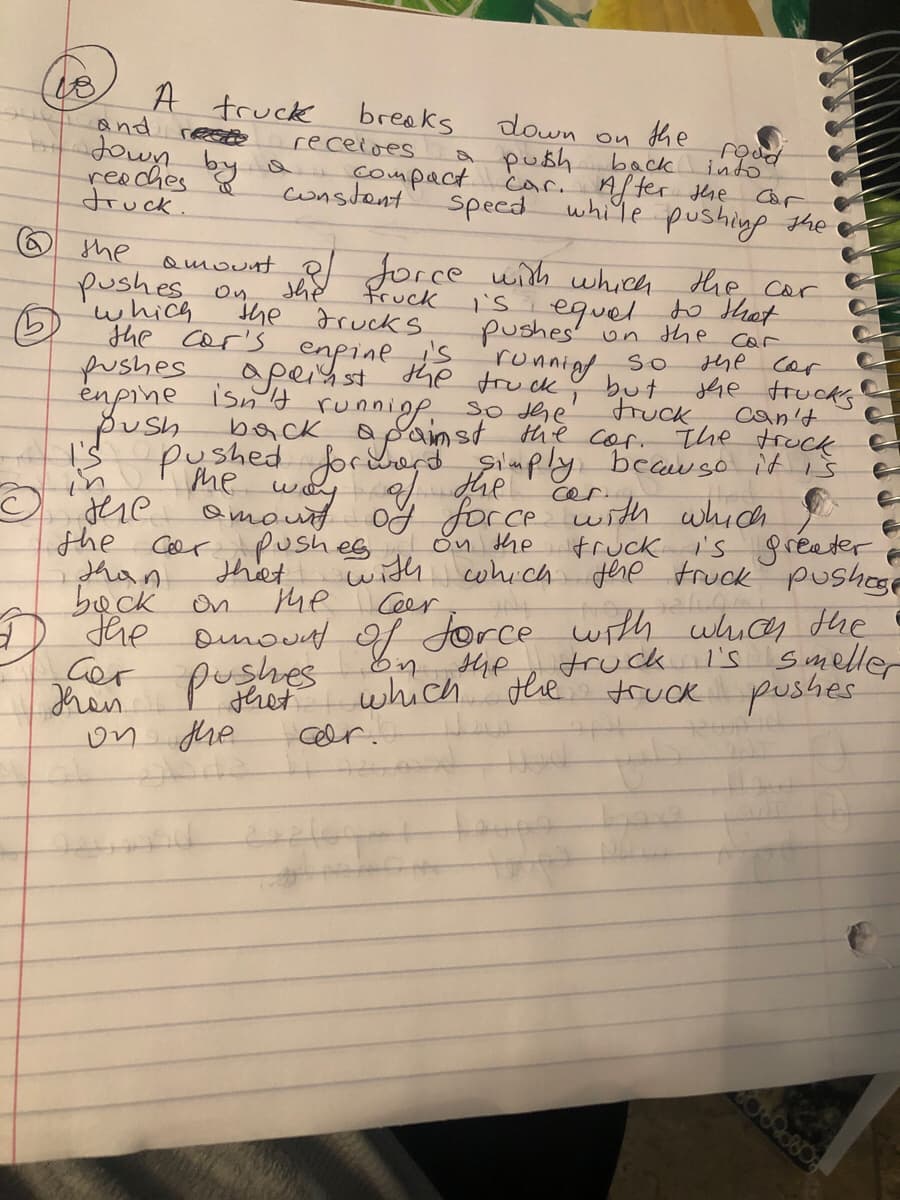 18 A truck breaks down on the road
and receives a push back into
town by a compact car. After the car
reaches a constant speed while pushing the
truck.
a the amount of force with which the car
pushes on the truck is equal to that
which the trucks pushes on the car
b the car's engine is running so the car
pushes against the truck, but the trucks
engine isn't running so the truck can't
push back against the car. The truck
is pushed forword simply because it is
in the way of the car.
c the amount of force with which
the car pushes on the truck is greater
than that with which the truck pushes
back on the car.
d the amount of force with which the
car pushes on the truck is smaller
than that which the truck pushes
on the car.